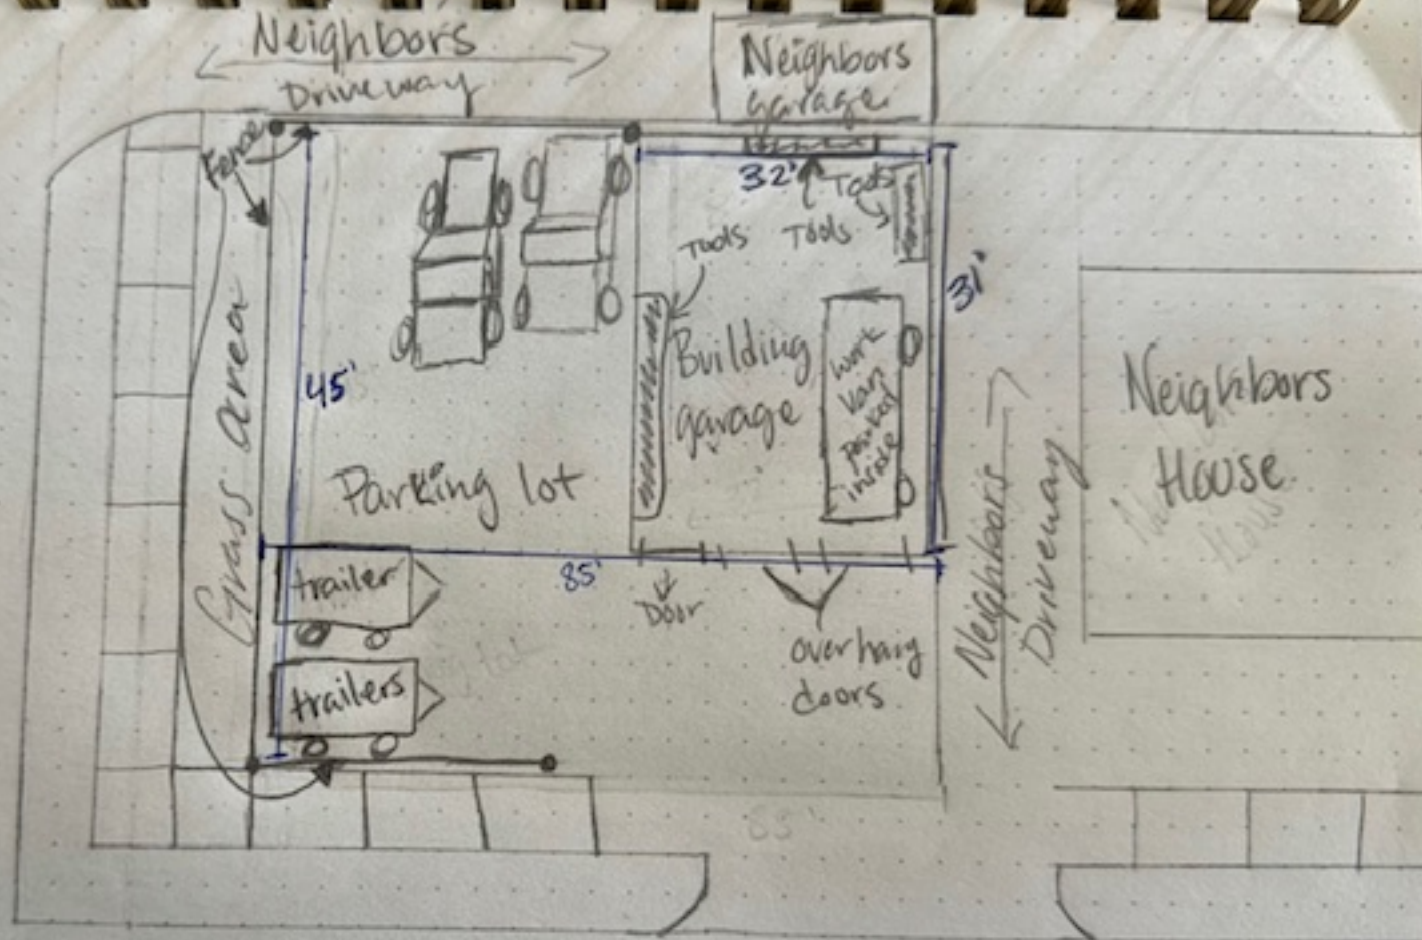 Neighbors
Driveway
Neighbors
garage
Fence
32'
Tools
Tools
Tools
31'
45'
Grass area
Building
garage
Work
Van
parked
inside
Parking lot
Neighbors
House
Neighbors
Driveway
trailer
85'
Door
overhang
doors
trailers